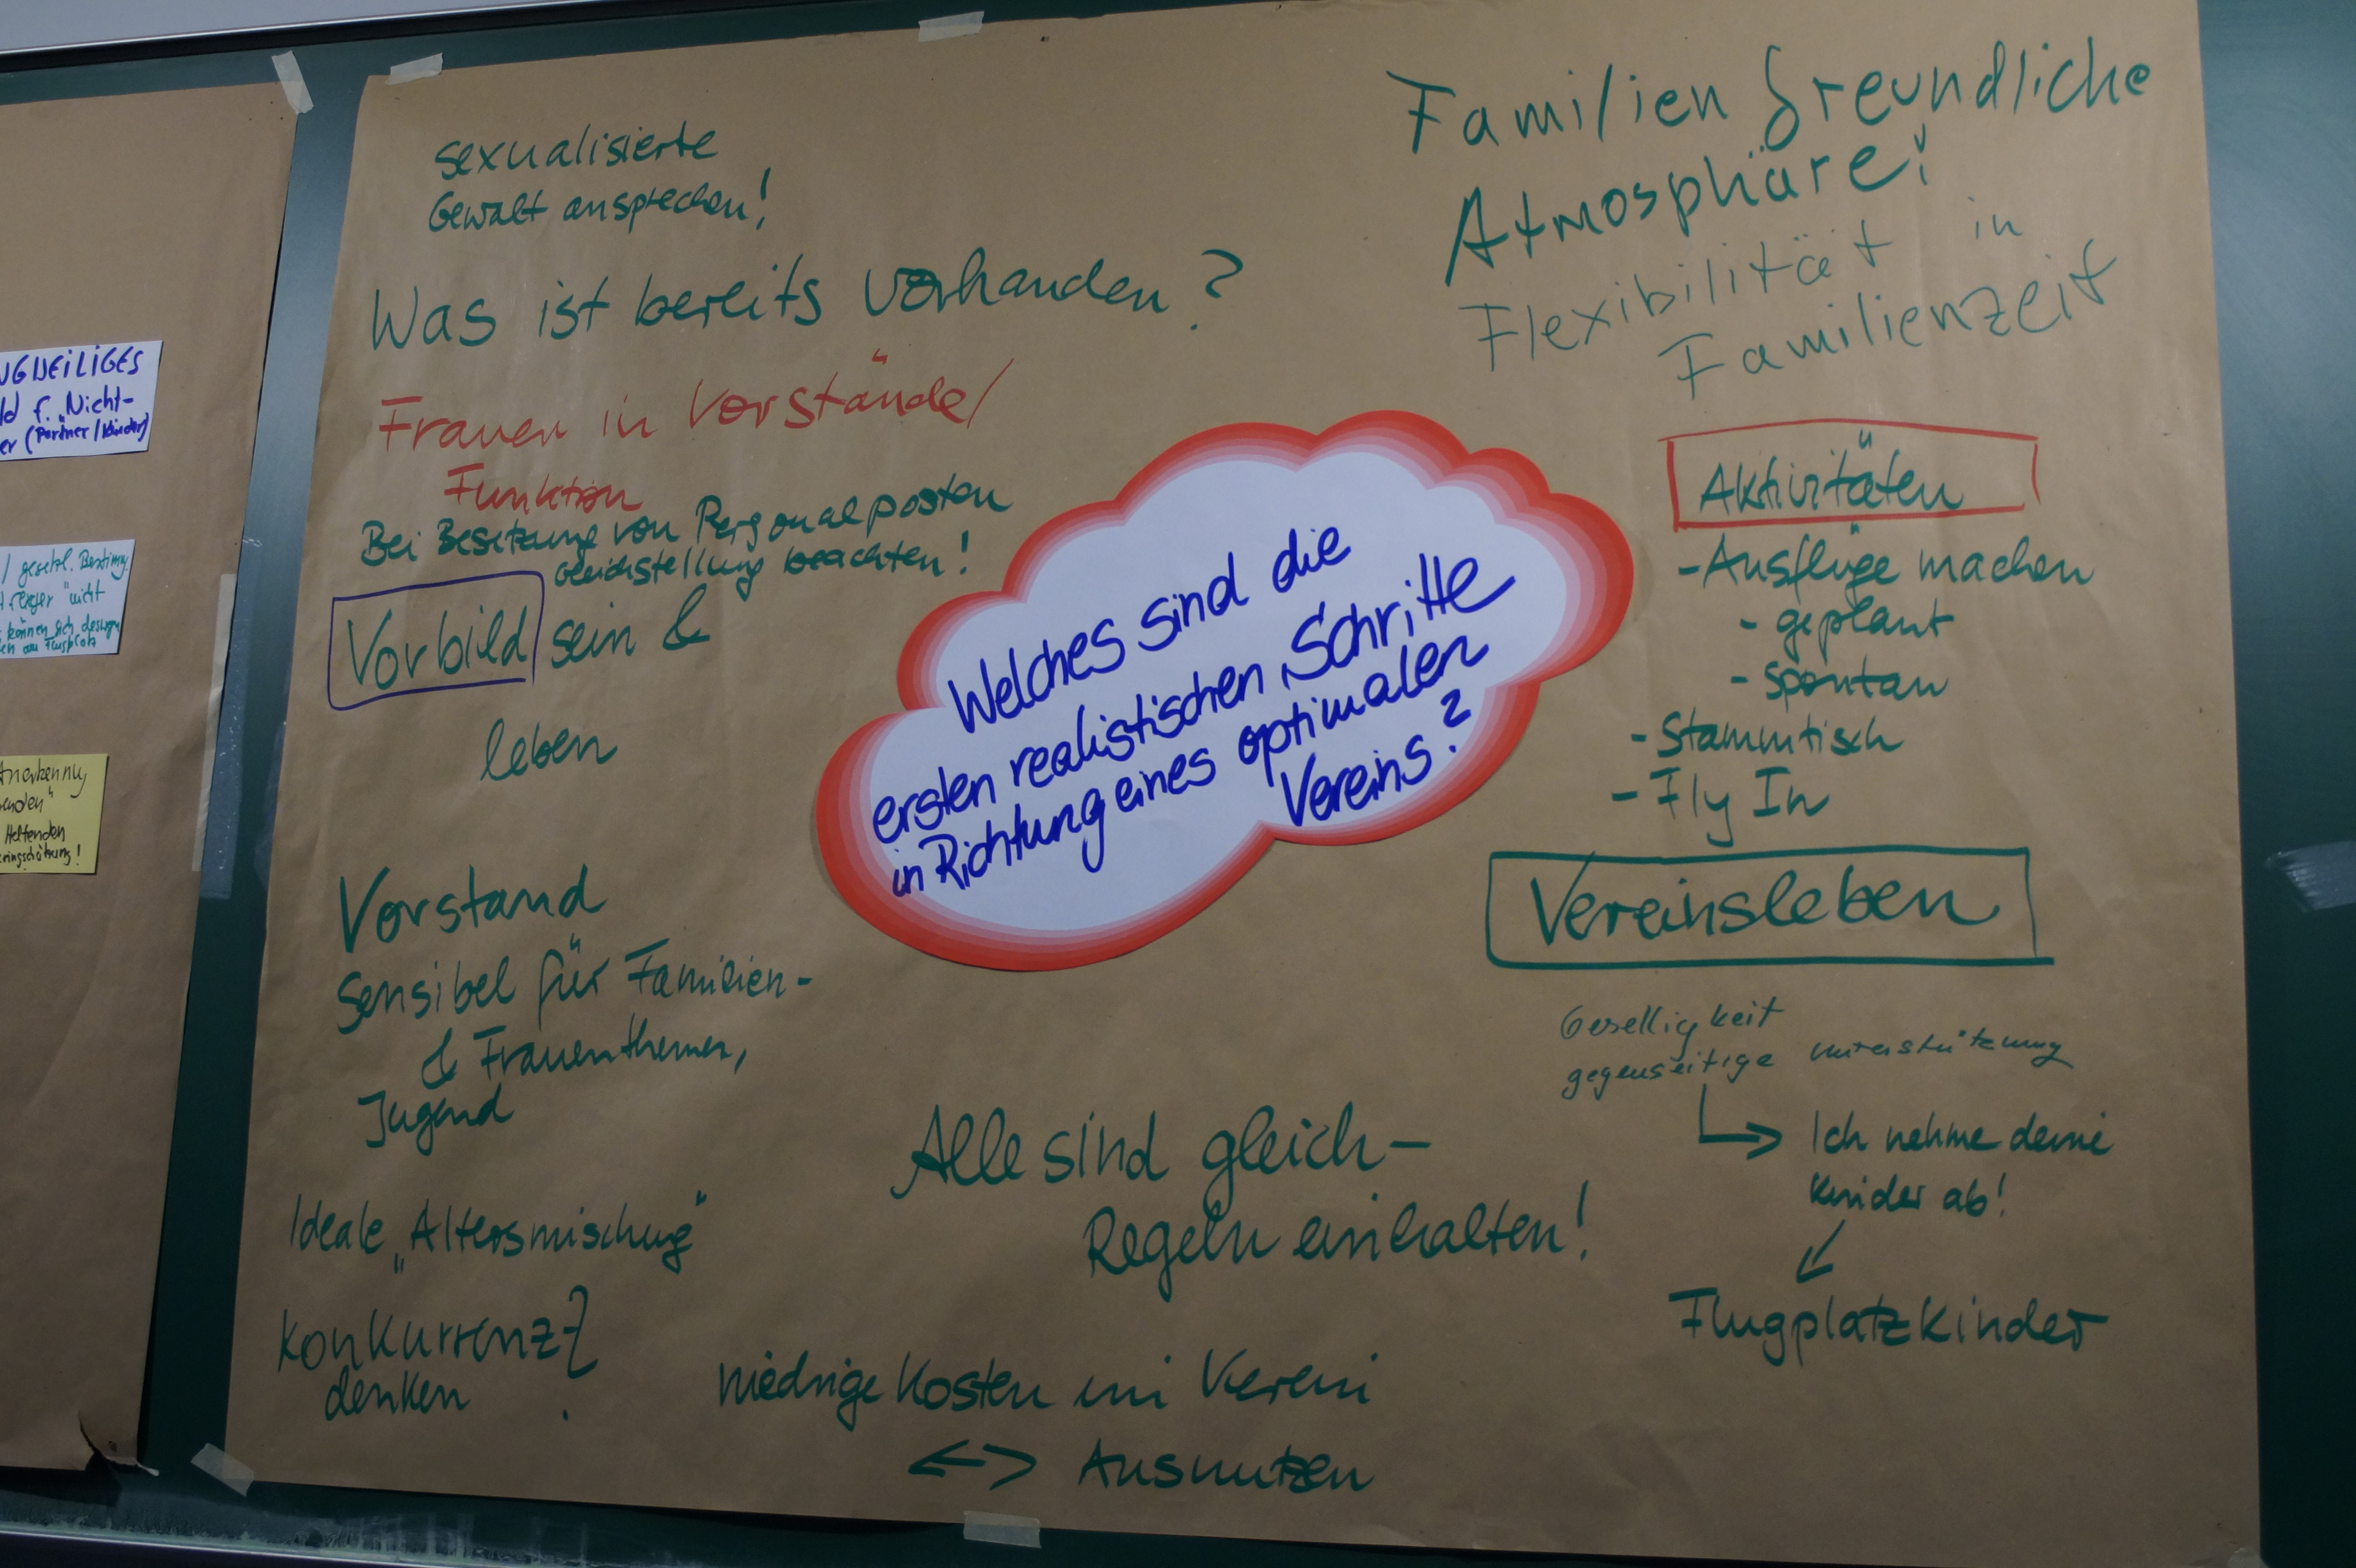 sexualisierte
Gewalt ansprechen!
Was ist bereits vorhanden?
Frauen in Vorstände/
Funktion
Bei Besetzung von Personalposten
Gleichstellung beachten!
Vorbild sein &
leben
Vorstand
sensibel für Familien-
& Frauenthemen,
Jugend
Ideale „Altersmischung"
Konkurrenz
denken
Welches sind die
ersten realistischen Schritte
in Richtung eines optimalen
Vereins?
Alle sind gleich –
Regeln einhalten!
niedrige Kosten im Verein
<-> Ausnutzen
Familienfreundliche
Atmosphäre!
Flexibilität in
Familienzeit
Aktivitäten
- Ausflüge machen
- geplant
- spontan
- Stammtisch
- Fly In
Vereinsleben
Geselligkeit
gegenseitige Unterstützung
Ich nehme deine
Kinder ab!
Flugplatzkinder
f. "Nicht-
(Partner/Kinder)
gesetzl. Bestimmg.
nicht
können sich deswegen
Helfenden